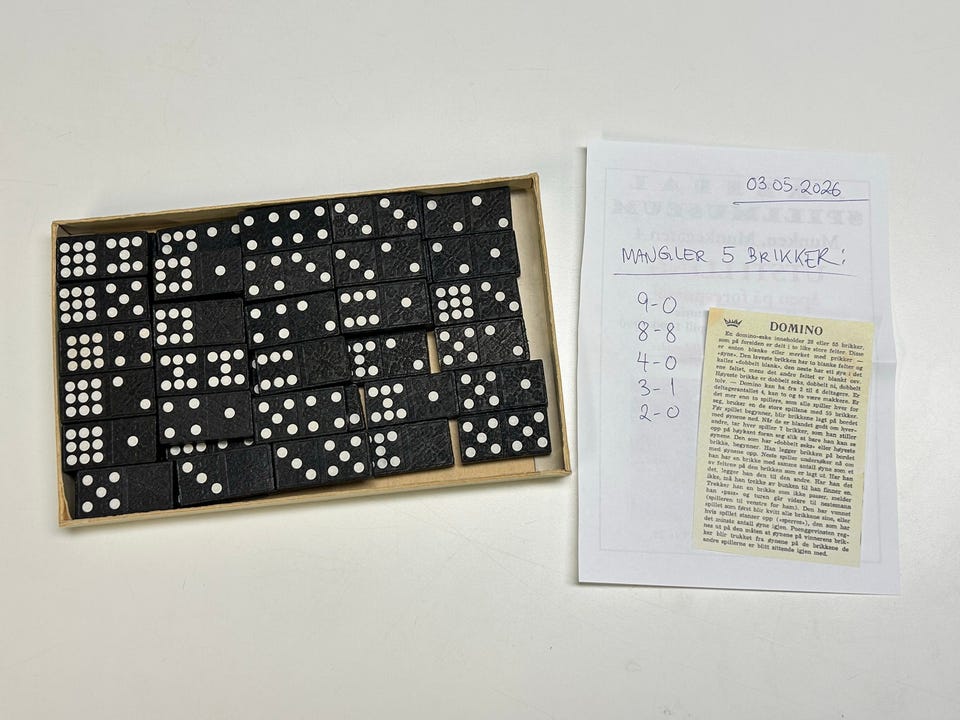 03.05.2026
MANGLER 5 BRIKKER:
9-0
8-8
4-0
3-1
2-0
DOMINO
En domino-eske inneholder 28 eller 55 brikker,
som på forsiden er delt i to like store felter. Disse
er enten blanke eller merket med prikker —
«øyne». Den laveste brikken har to blanke felter og
kalles «dobbelt blank», den neste har ett øye i det
ene feltet, mens det andre feltet er blankt osv.
Høyeste brikke er dobbelt seks, dobbelt ni, dobbelt
tolv. — Domino kan ha fra 2 til 4 deltagere. Er
deltagerantallet 4, kan to og to være makkere. Er
det mer enn to spillere, som alle spiller hver for
seg, bruker en de store spillene med 55 brikker.
Før spillet begynner, blir brikkene lagt på bordet
med øynene ned. Når de er blandet godt om hver-
andre, tar hver spiller 7 brikker, som han stiller
opp på høykant foran seg slik at bare han kan se
øynene. Den som har «dobbelt seks» eller høyeste
brikke, begynner. Han legger brikken på bordet
med øynene opp. Neste spiller undersøker nå om
han har en brikke med samme antall øyne som et
av feltene på den brikken som er lagt ut. Har han
det, legger han den til den andre. Har han det
ikke, må han trekke av bunken til han finner en.
Trekker han en brikke som ikke passer, melder
han «pass» og turen går videre til nestemann
(spilleren til venstre for ham). Den har vunnet
spillet som først blir kvitt alle brikkene sine, eller
hvis spillet stanser opp («sperres»), den som har
det minste antall øyne igjen. Poenggevinsten reg-
nes ut på den måten at øynene på vinnerens brik-
ker blir trukket fra øynene på de brikkene de
andre spillerne er blitt sittende igjen med.